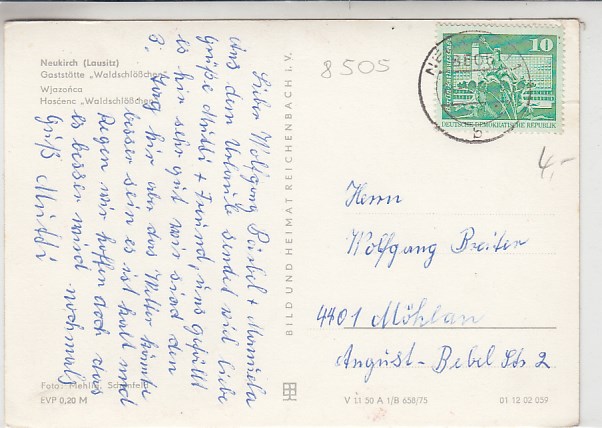 Neukirch (Lausitz)
Gaststätte „Waldschlößchen"
Wjazońca
Hosćenc „Waldschlößchen"
Lieber Wolfgang Bärbel + Manuela
Aus dem Urlaub sendet viel liebe
Grüße Mutti + Freund, uns gefällt
es hier sehr gut wir sind den
8. Tag hier aber das Wetter könnte
besser sein es ist kalt und
Regen wir hoffen doch das
es besser wird nochmals
Gruß Mutti
Foto: Mehlig, Schönfeld
EVP 0,20 M
BILD UND HEIMAT REICHENBACH i. V.
V 11 50 A 1/B 658/75
01 12 02 059
8505
10
DEUTSCHE DEMOKRATISCHE REPUBLIK
b
4,-
Herrn
Wolfgang Breiter
4401 Möhlau
August-Bebel Str 2